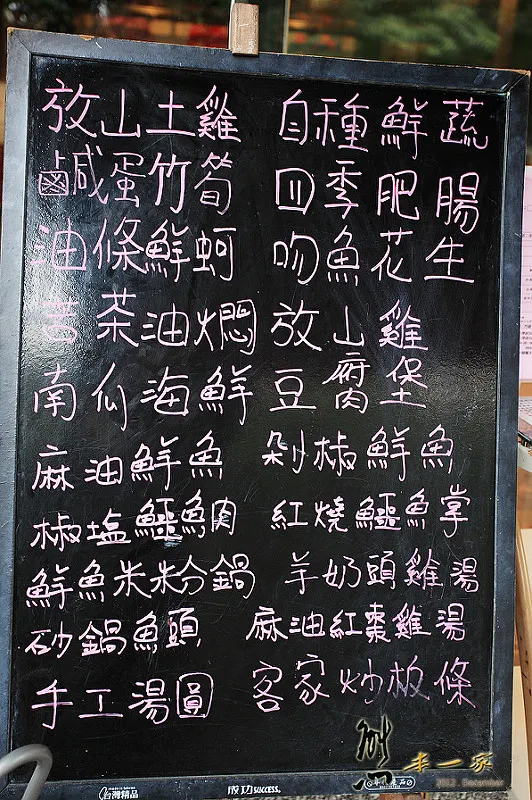 放山土雞 自種鮮蔬
鹹蛋竹筍 四季肥腸
油條鮮蚵 吻魚花生
苦茶油燜放山雞
南瓜海鮮豆腐堡
麻油鮮魚 剁椒鮮魚
椒塩鱷魚肉 紅燒鱷魚掌
鮮魚米粉鍋 羊奶頭雞湯
砂鍋魚頭 麻油紅棗雞湯
手工湯圓 客家炒板條
台灣精品 成功SUCCESS.
2012. December